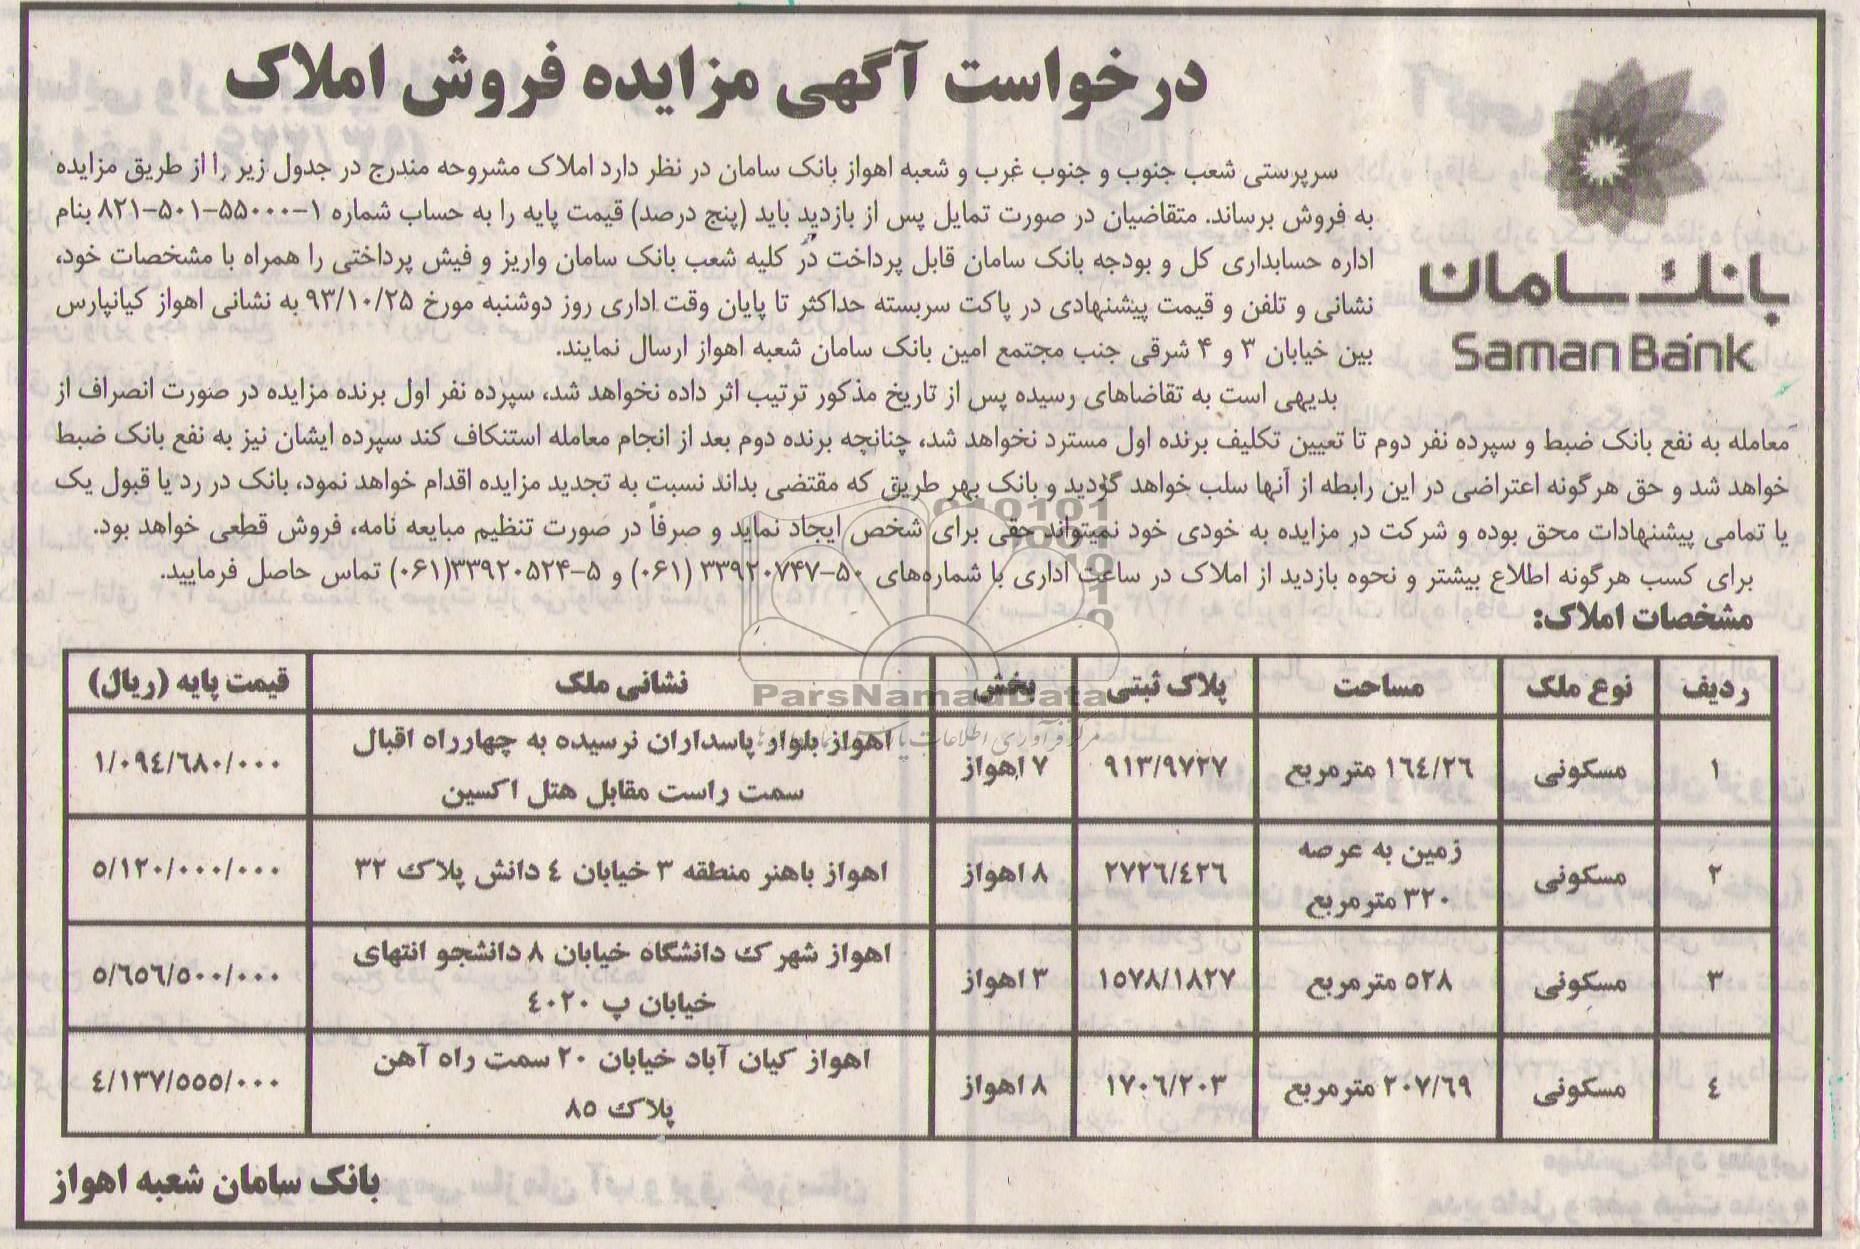 درخواست آگهی مزایده فروش املاک
بانک سامان
Saman Bank
سرپرستی شعب جنوب و جنوب غرب و شعبه اهواز بانک سامان در نظر دارد املاک مشروحه مندرج در جدول زیر را از طریق مزایده
به فروش برساند. متقاضیان در صورت تمایل پس از بازدید باید (پنج درصد) قیمت پایه را به حساب شماره ۱-۵۵۰۰۰-۵۰۱-۸۲۱ بنام
اداره حسابداری کل و بودجه بانک سامان قابل پرداخت در کلیه شعب بانک سامان واریز و فیش پرداختی را همراه با مشخصات خود،
نشانی و تلفن و قیمت پیشنهادی در پاکت سربسته حداکثر تا پایان وقت اداری روز دوشنبه مورخ ۹۳/۱۰/۲۵ به نشانی اهواز کیانپارس
بین خیابان ۳ و ۴ شرقی جنب مجتمع امین بانک سامان شعبه اهواز ارسال نمایند.
بدیهی است به تقاضاهای رسیده پس از تاریخ مذکور ترتیب اثر داده نخواهد شد، سپرده نفر اول برنده مزایده در صورت انصراف از
معامله به نفع بانک ضبط و سپرده نفر دوم تا تعیین تکلیف برنده اول مسترد نخواهد شد، چنانچه برنده دوم بعد از انجام معامله استنکاف کند سپرده ایشان نیز به نفع بانک ضبط
خواهد شد و حق هرگونه اعتراضی در این رابطه از آنها سلب خواهد گردید و بانک بهر طریق که مقتضی بداند نسبت به تجدید مزایده اقدام خواهد نمود، بانک در رد یا قبول یک
یا تمامی پیشنهادات محق بوده و شرکت در مزایده به خودی خود نمیتواند حقی برای شخص ایجاد نماید و صرفاً در صورت تنظیم مبایعه نامه، فروش قطعی خواهد بود.
برای کسب هرگونه اطلاع بیشتر و نحوه بازدید از املاک در ساعت اداری با شماره‌های ۵۰-۳۳۹۲۰۷۴۷ (۰۶۱) و ۵-۳۳۹۲۰۵۲۴(۰۶۱) تماس حاصل فرمایید.
مشخصات املاک:
ردیف نوع ملک مساحت پلاک ثبتی بخش نشانی ملک قیمت پایه (ریال)
۱ مسکونی ۱۶٤/۲۶ مترمربع ۹۱۳/۹۷۲۷ ۷ اهواز اهواز بلوار پاسداران نرسیده به چهارراه اقبال ۱/۰۹٤/۶۸۰/۰۰۰
سمت راست مقابل هتل اکسین
۲ مسکونی زمین به عرصه ۲۷۲۶/٤۲۶ ۸ اهواز اهواز باهنر منطقه ۳ خیابان ٤ دانش پلاک ۳۲ ۵/۱۲۰/۰۰۰/۰۰۰
۳۲۰ مترمربع
۳ مسکونی ۵۲۸ مترمربع ۱۵۷۸/۱۸۲۷ ۳ اهواز اهواز شهرک دانشگاه خیابان ۸ دانشجو انتهای ۵/۶۵۶/۵۰۰/۰۰۰
خیابان پ ٤۰۲۰
٤ مسکونی ۲۰۷/۶۹ مترمربع ۱۷۰۶/۲۰۳ ۸ اهواز اهواز کیان آباد خیابان ۲۰ سمت راه آهن ٤/۱۳۷/۵۵۵/۰۰۰
پلاک ۸۵
بانک سامان شعبه اهواز
ParsNamadData